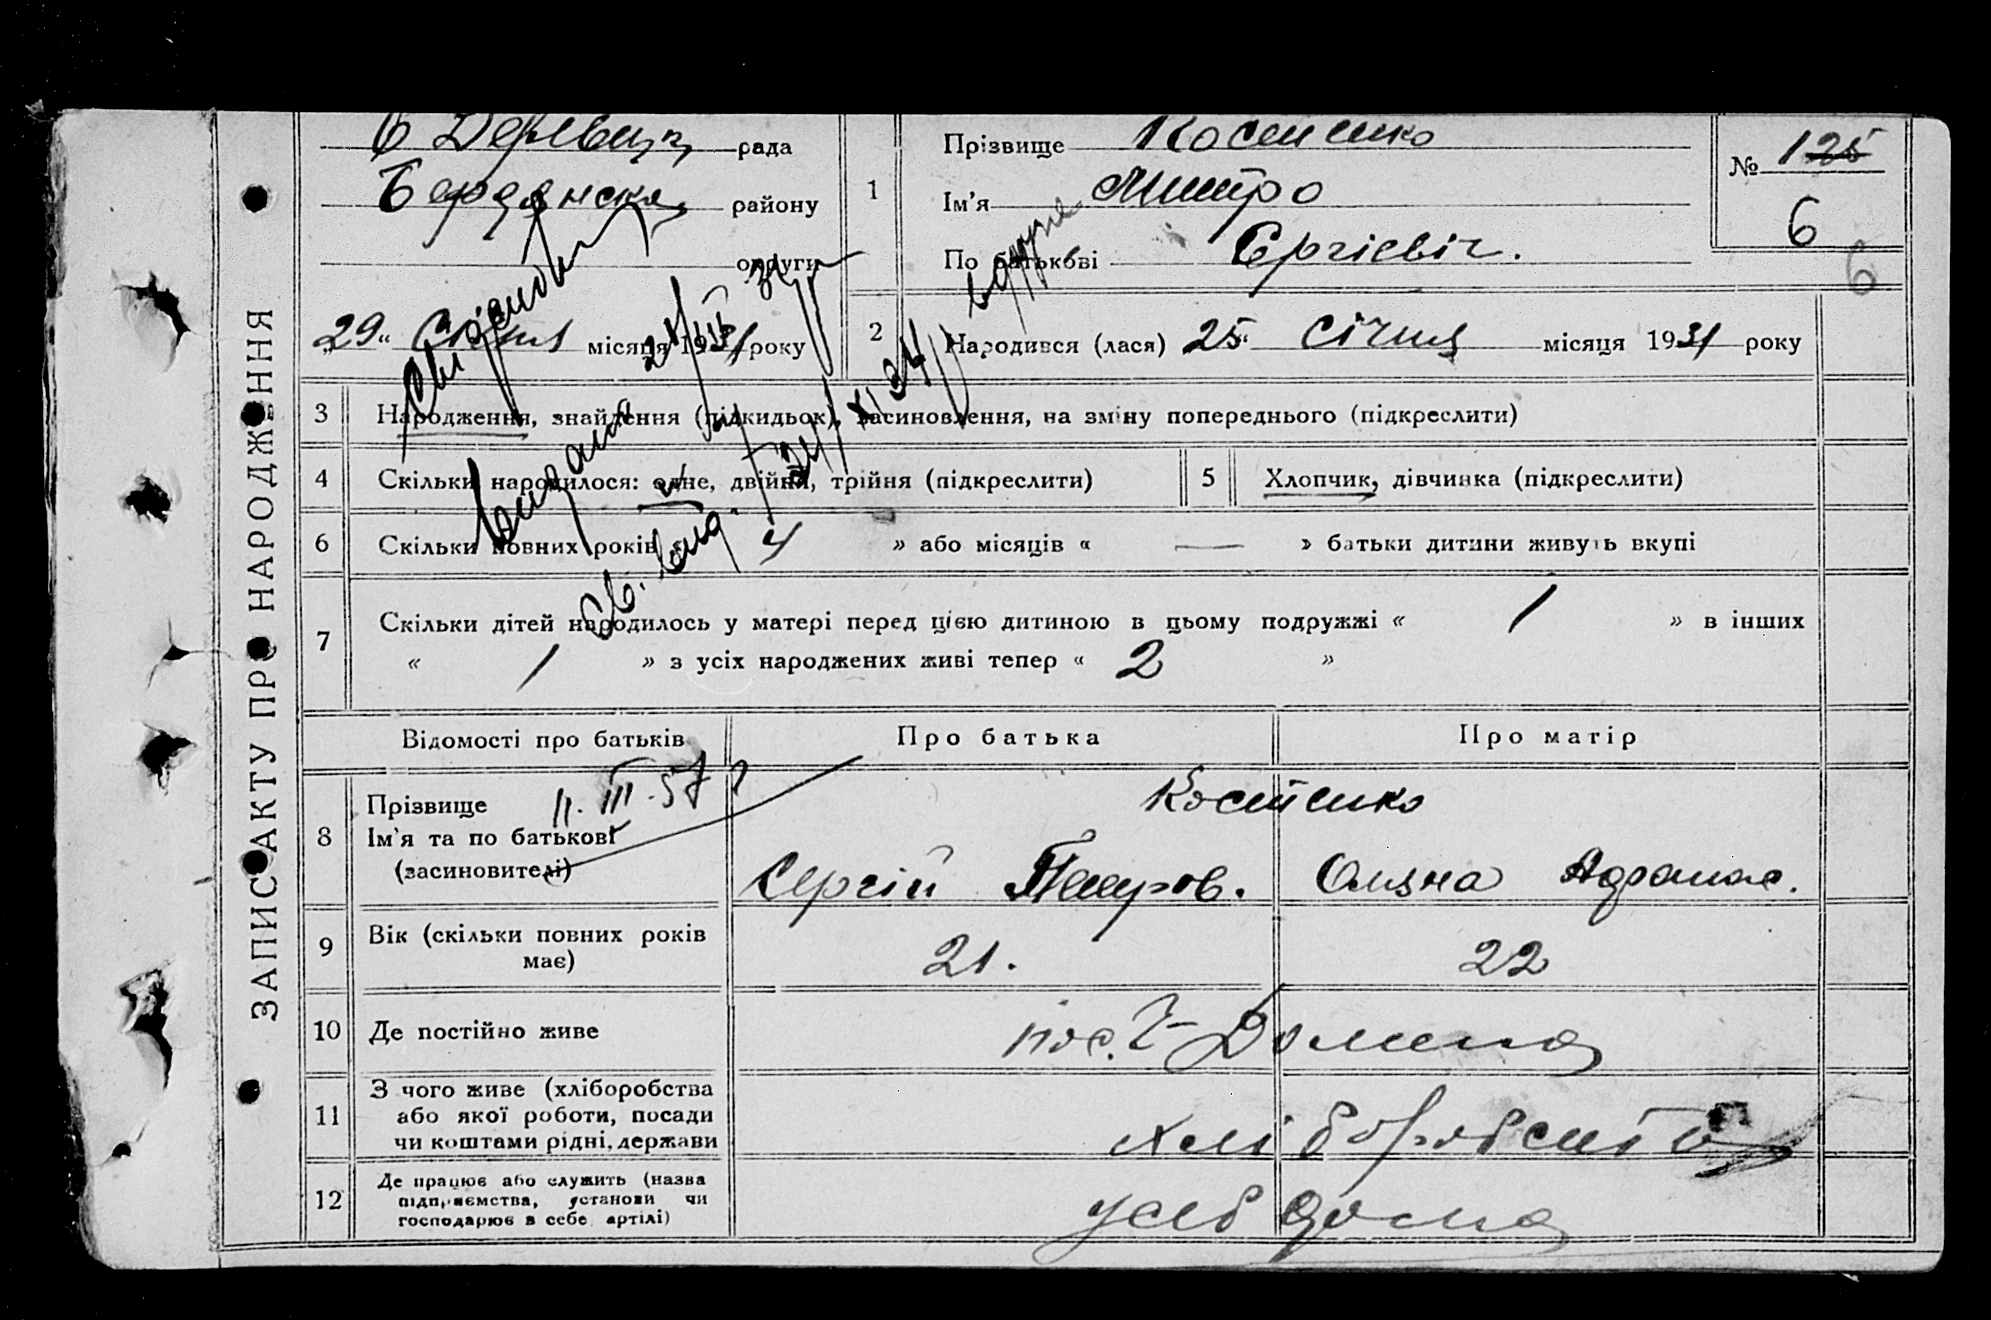 ЗАПИС АКТУ ПРО НАРОДЖЕННЯ
рада
Бердянська району
округи
„29“ Січня місяця 1931 року
1
Прізвище Костенко
Ім'я Дмитро
По батькові Єргієвіч.
№ 125
6
6
2
Народився (лася) 25 січня місяця 1931 року
3
Народження, знайдення (підкидьок), засиновлення, на зміну попереднього (підкреслити)
4
Скільки народилося: одне, двійня, трійня (підкреслити)
5
Хлопчик, дівчинка (підкреслити)
6
Скільки повних років « 4 » або місяців « — » батьки дитини живуть вкупі
7
Скільки дітей народилось у матері перед цією дитиною в цьому подружжі « 1 » в інших
« 1 » з усіх народжених живі тепер « 2 »
Відомості про батьків
Про батька
Про матір
11. III. 57 г
8
Прізвище
Ім'я та по батькові
(засиновителі)
Костенко
Сергій Петров.
Оляна
9
Вік (скільки повних років має)
21.
22
10
Де постійно живе
пос. Долина
11
З чого живе (хліборобства
або якої роботи, посади
чи коштами рідні, держави
хліборобство
12
Де працює або служить (назва
підприємства, установи чи
господарює в себе артілі)
усеб дома